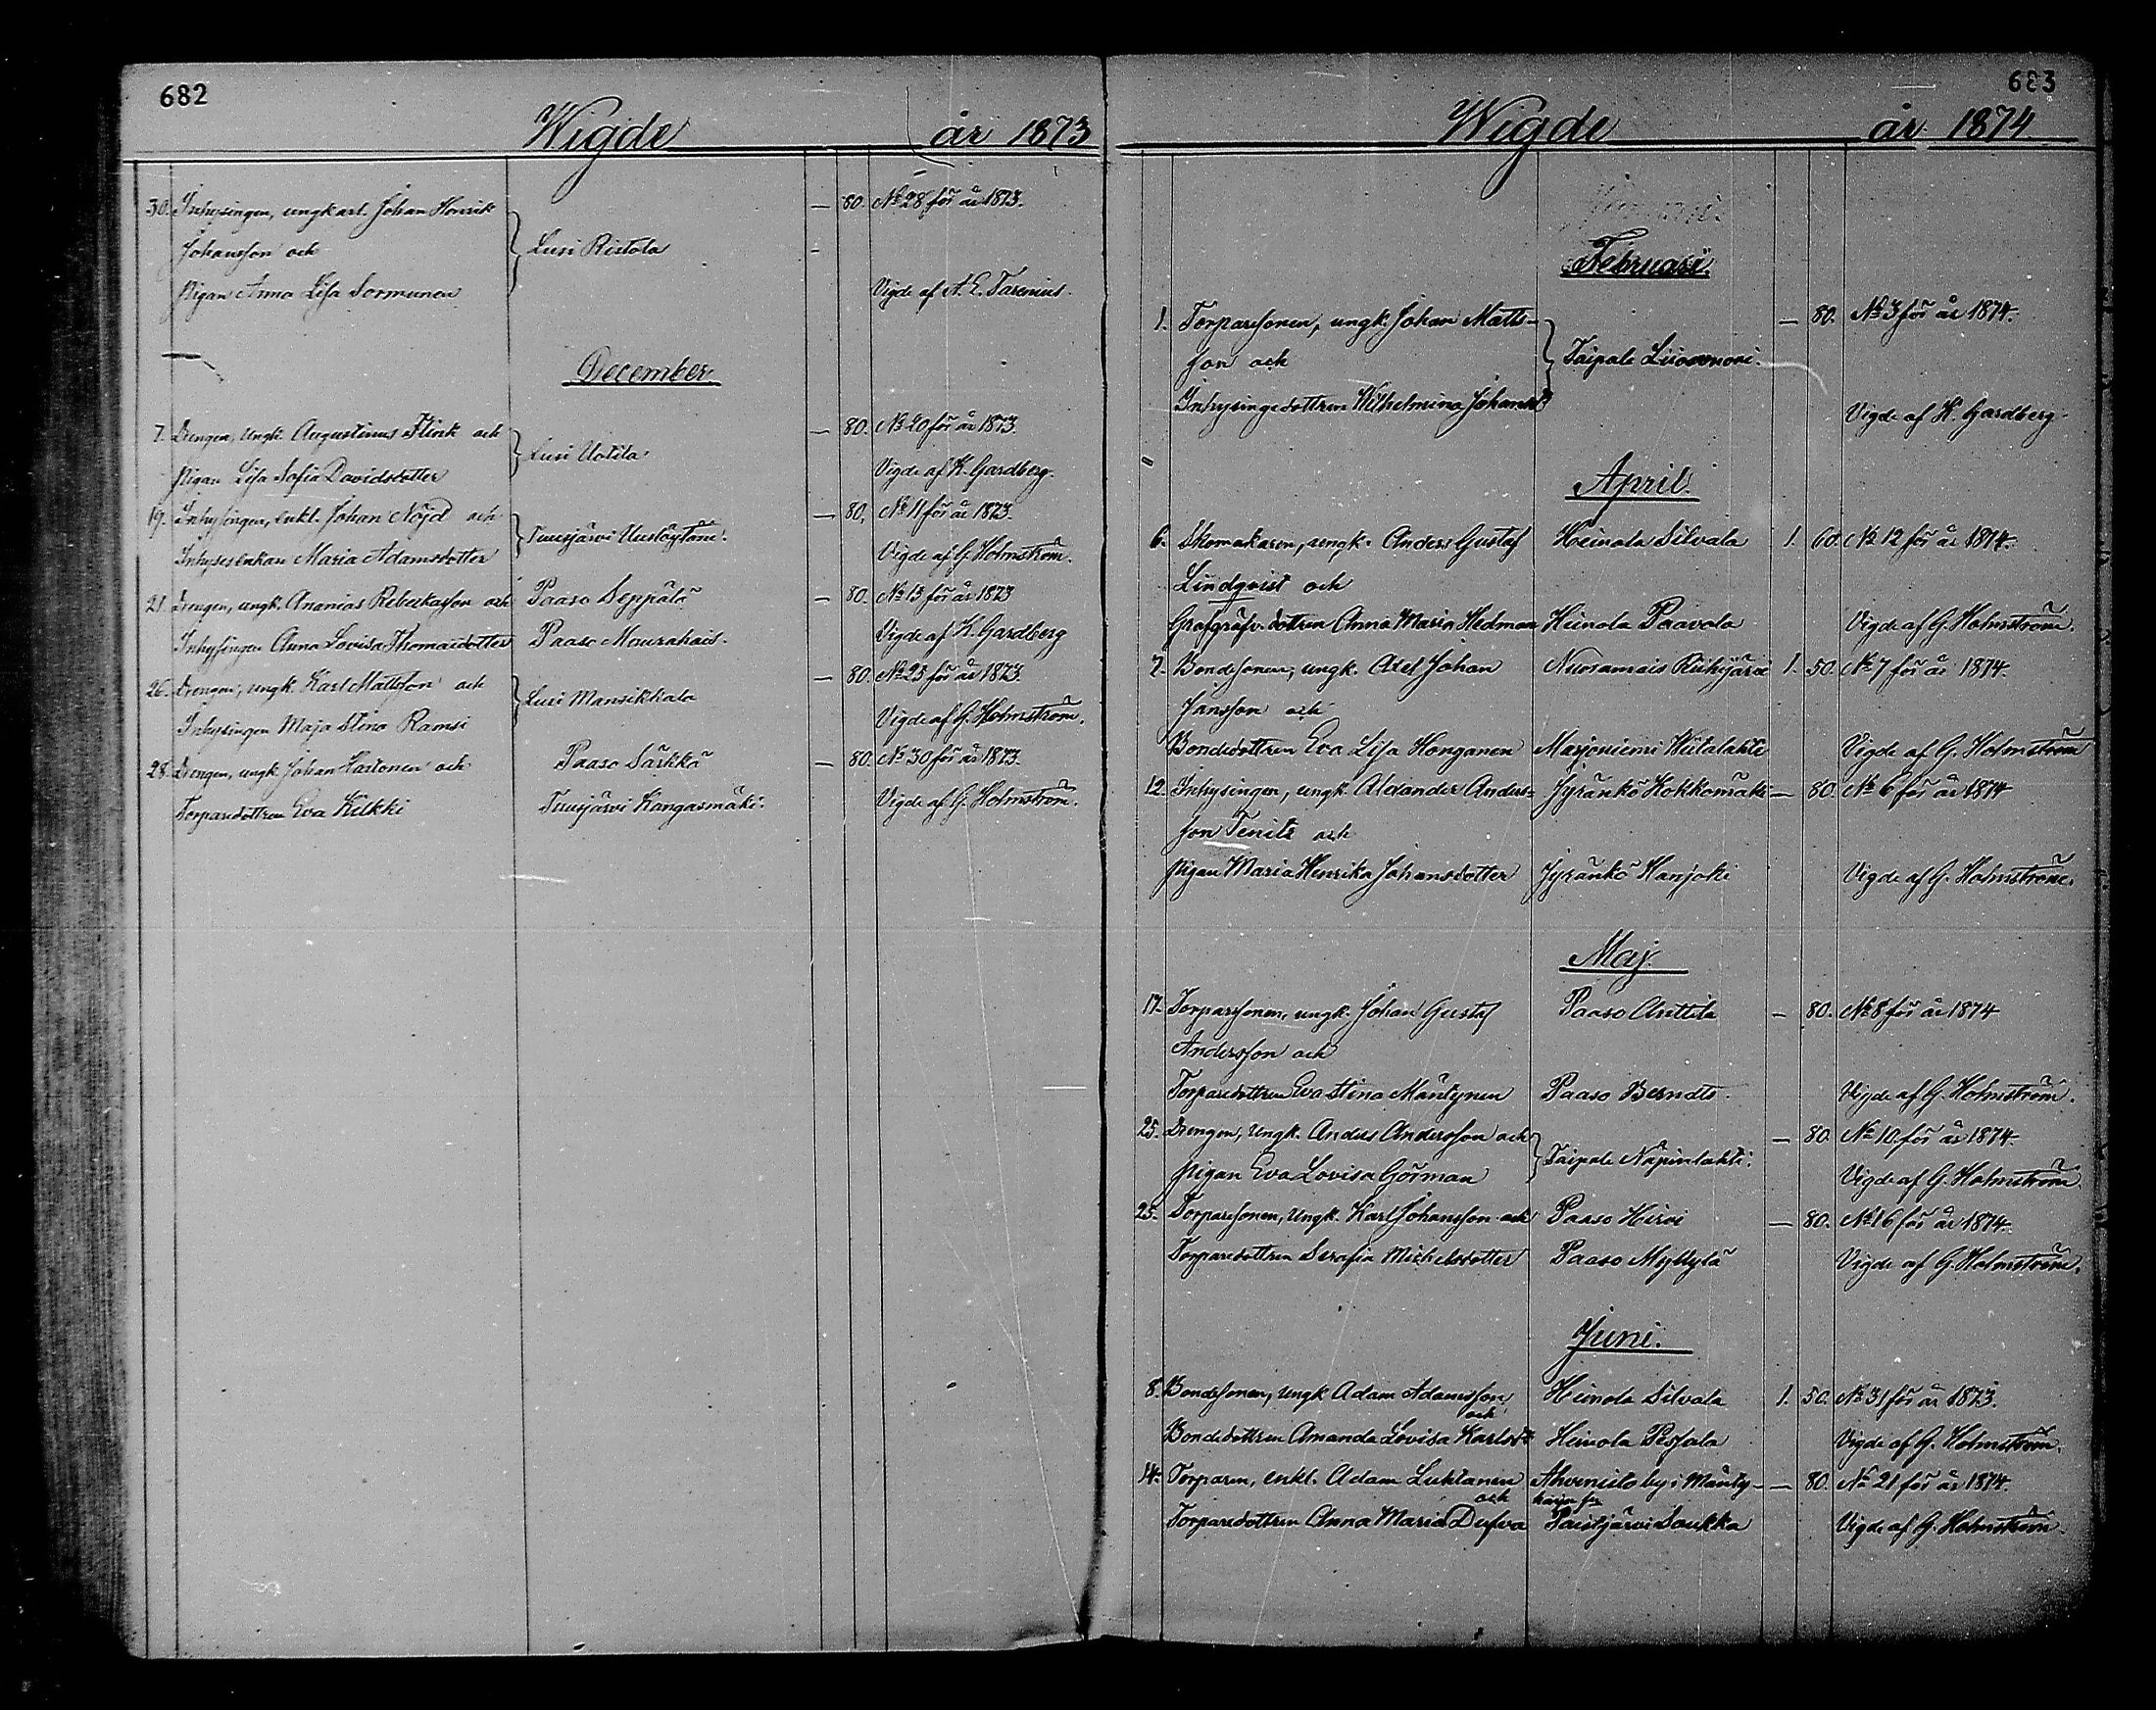 682
Wigde år 1873
30. Inhysingen, ungkarl. Johan Henrik — 80. No 28 för år 1873.
Johansson och } Lusi Ristola -
Pigan Anna Lisa Sormunen Vigde af A. E. Tarenius.
December.
7. Drengen, Ungk. Augustinus Flink och — 80. No 20 för år 1873.
Pigan Lisa Sofia Davidsdotter } Lusi Uotila Vigde af K. Gardberg.
19. Inhysingen, enkl. Johan Nöjd och — 80. No 11 för år 1873.
Inhysesenkan Maria Adamsdotter Vigde af G. Holmström.
21. Drengen, ungk. Ananias Rebeckasson och Paaso Seppälä — 80. No 13 för år 1873
Inhysingen Anna Lovisa Thomasdotter Paaso Vigde af K. Gardberg
26. Drengen, ungk. Karl Mattsson och — 80. No 25 för år 1873.
Inhysingen Maja Stina Ramsi } Lusi Mansikkala Vigde af G. Holmström.
28. Drengen, ungk. Johan Hartonen och Paaso Särkkä — 80. No 30 för år 1873.
Torparedottren Eva Kilkki Tuusjärvi Kangasmäki. Vigde af G. Holmström.
683
Wigde år 1874
Februari.
1. Torparesonen, ungk. Johan Matts- — 80. No 3 för år 1874.
son och } Taipale
Inhysingedottren Wilhelmina Johansd Vigde af K. Gardberg.
April.
6. Skomakaren, ungk. Anders Gustaf Heinola Silvala 1. 60. No 12 för år 1874.
Lindqvist och
dottren Anna Maria Hedman Heinola Paavola Vigde af G. Holmström.
7. Bondesonen, ungk. Axel Johan 1. 50. No 7 för år 1874.
Jansson och
Bondedottren Eva Lisa Honganen Marjoniemi Vigde af G. Holmström
12. Inhysingen, ungk. Alexander Anders= Jyränkö Kokkomäki — 80. No 6 för år 1874
son Tenitz och
Pigan Maria Henrika Johansdotter Jyränkö Hanjoki Vigde af G. Holmström.
Maj.
17. Torparesonen, ungk. Johan Gustaf Paaso Anttila — 80. No 8 för år 1874
Andersson och
Torparedottren Eva Stina Mäntynen Paaso Berndts. Vigde af G. Holmström.
25. Drengen, Ungk. Anders Andersson och — 80. No 10 för år 1874.
Pigan Eva Lovisa Görman } Taipale Näpinlahti. Vigde af G. Holmström.
25. Torparesonen, Ungk. Karl Johansson och Paaso Hirvi — 80. No 16 för år 1874.
Torparedottren Serafia Michelsdotter Paaso Myllylä Vigde af G. Holmström.
Juni.
8. Bondesonen, ungk Adam Adamsson Heinola Silvala 1. 50. No 31 för år 1873.
och
Bondedottren Amanda Lovisa Karlsd:r Heinola Vigde af G. Holmström.
14. Torparen, enkl. Adam Luktanen Ahvenisto by i Mänty- — 80. No 21 för år 1874.
och
Torparedottren Anna Maria Dufva Paistjärvi Soukka Vigde af G. Holmström.